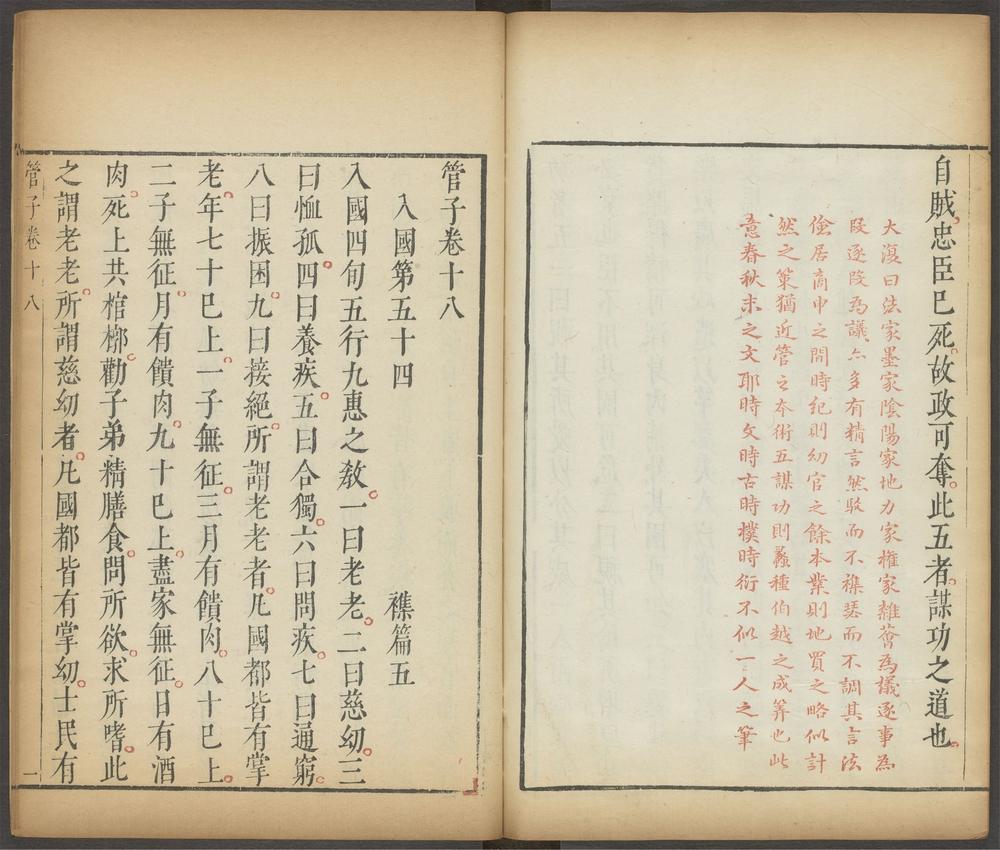 自賊忠臣已死故政可奪此五者謀功之道也
大復曰法家墨家陰陽家地力家権家雜薈為議逐事為
段逐段為議亦多有精言然駁而不襍瑟而不調其言法
儉居商申之間時紀則幼官之餘本業則地買之略似計
然之策猶近管之本術五謀功則蠡種伯越之成筭也此
意春秋末之文耶時文時古時樸時衍不似一人之筆
管子卷十八
入國第五十四 襍篇五
入國四旬五行九惠之教一曰老老二曰慈幼三
曰恤孤四曰養疾五曰合獨六曰問疾七曰通窮
八曰振困九曰接絕所謂老老者凡國都皆有掌
老年七十已上一子無征三月有饋肉八十已上
二子無征月有饋肉九十已上盡家無征日有酒
肉死上共棺槨勸子弟精膳食問所欲求所嗜此
之謂老老所謂慈幼者凡國都皆有掌幼士民有
管子卷十八 一